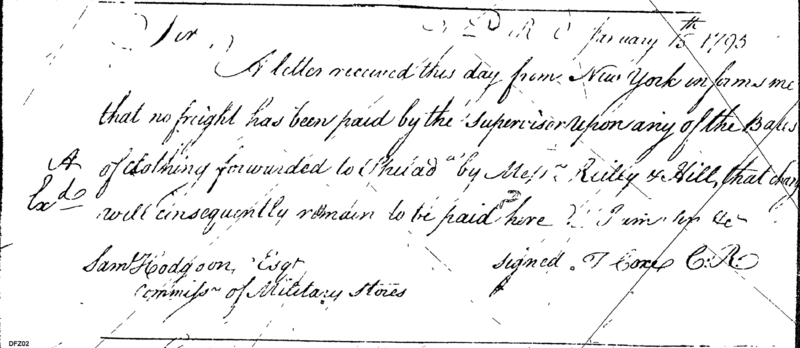 Sir T D R O January 15th 1795
A letter received this day from New York informs me
that no freight has been paid by the Supervisor upon any of the Bales
A of Clothing forwarded to Philad.a by Messrs. Ruley & Hill, that
Exd will cinsequently remain to be paid here. I am Sir &c
Saml Hodgdon, Esqr signed. T Coxe C.R.
Commissr of Military Stores
DFZ02